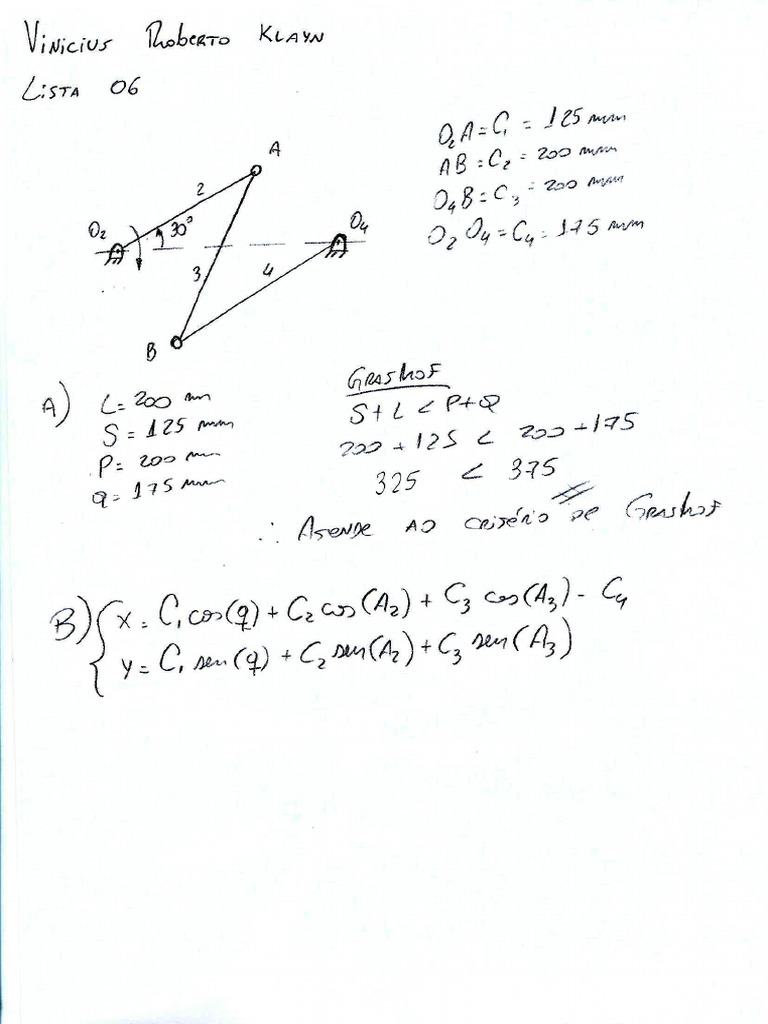 Vinicius Roberto Klayn
Lista 06
A
2
O₂
30°
O₄
3
4
B
O₂A = C₁ = 125 mm
AB = C₂ = 200 mm
O₄B = C₃ = 200 mm
O₂O₄ = C₄ = 175 mm
A)
L = 200 mm
S = 125 mm
P = 200 mm
q = 175 mm
Grashof
S + L < P + Q
200 + 125 < 200 + 175
325 < 375
∴ Atende ao critério de Grashof
B) { x = C₁ cos(q) + C₂ cos(A₂) + C₃ cos(A₃) - C₄
y = C₁ sen(q) + C₂ sen(A₂) + C₃ sen(A₃)